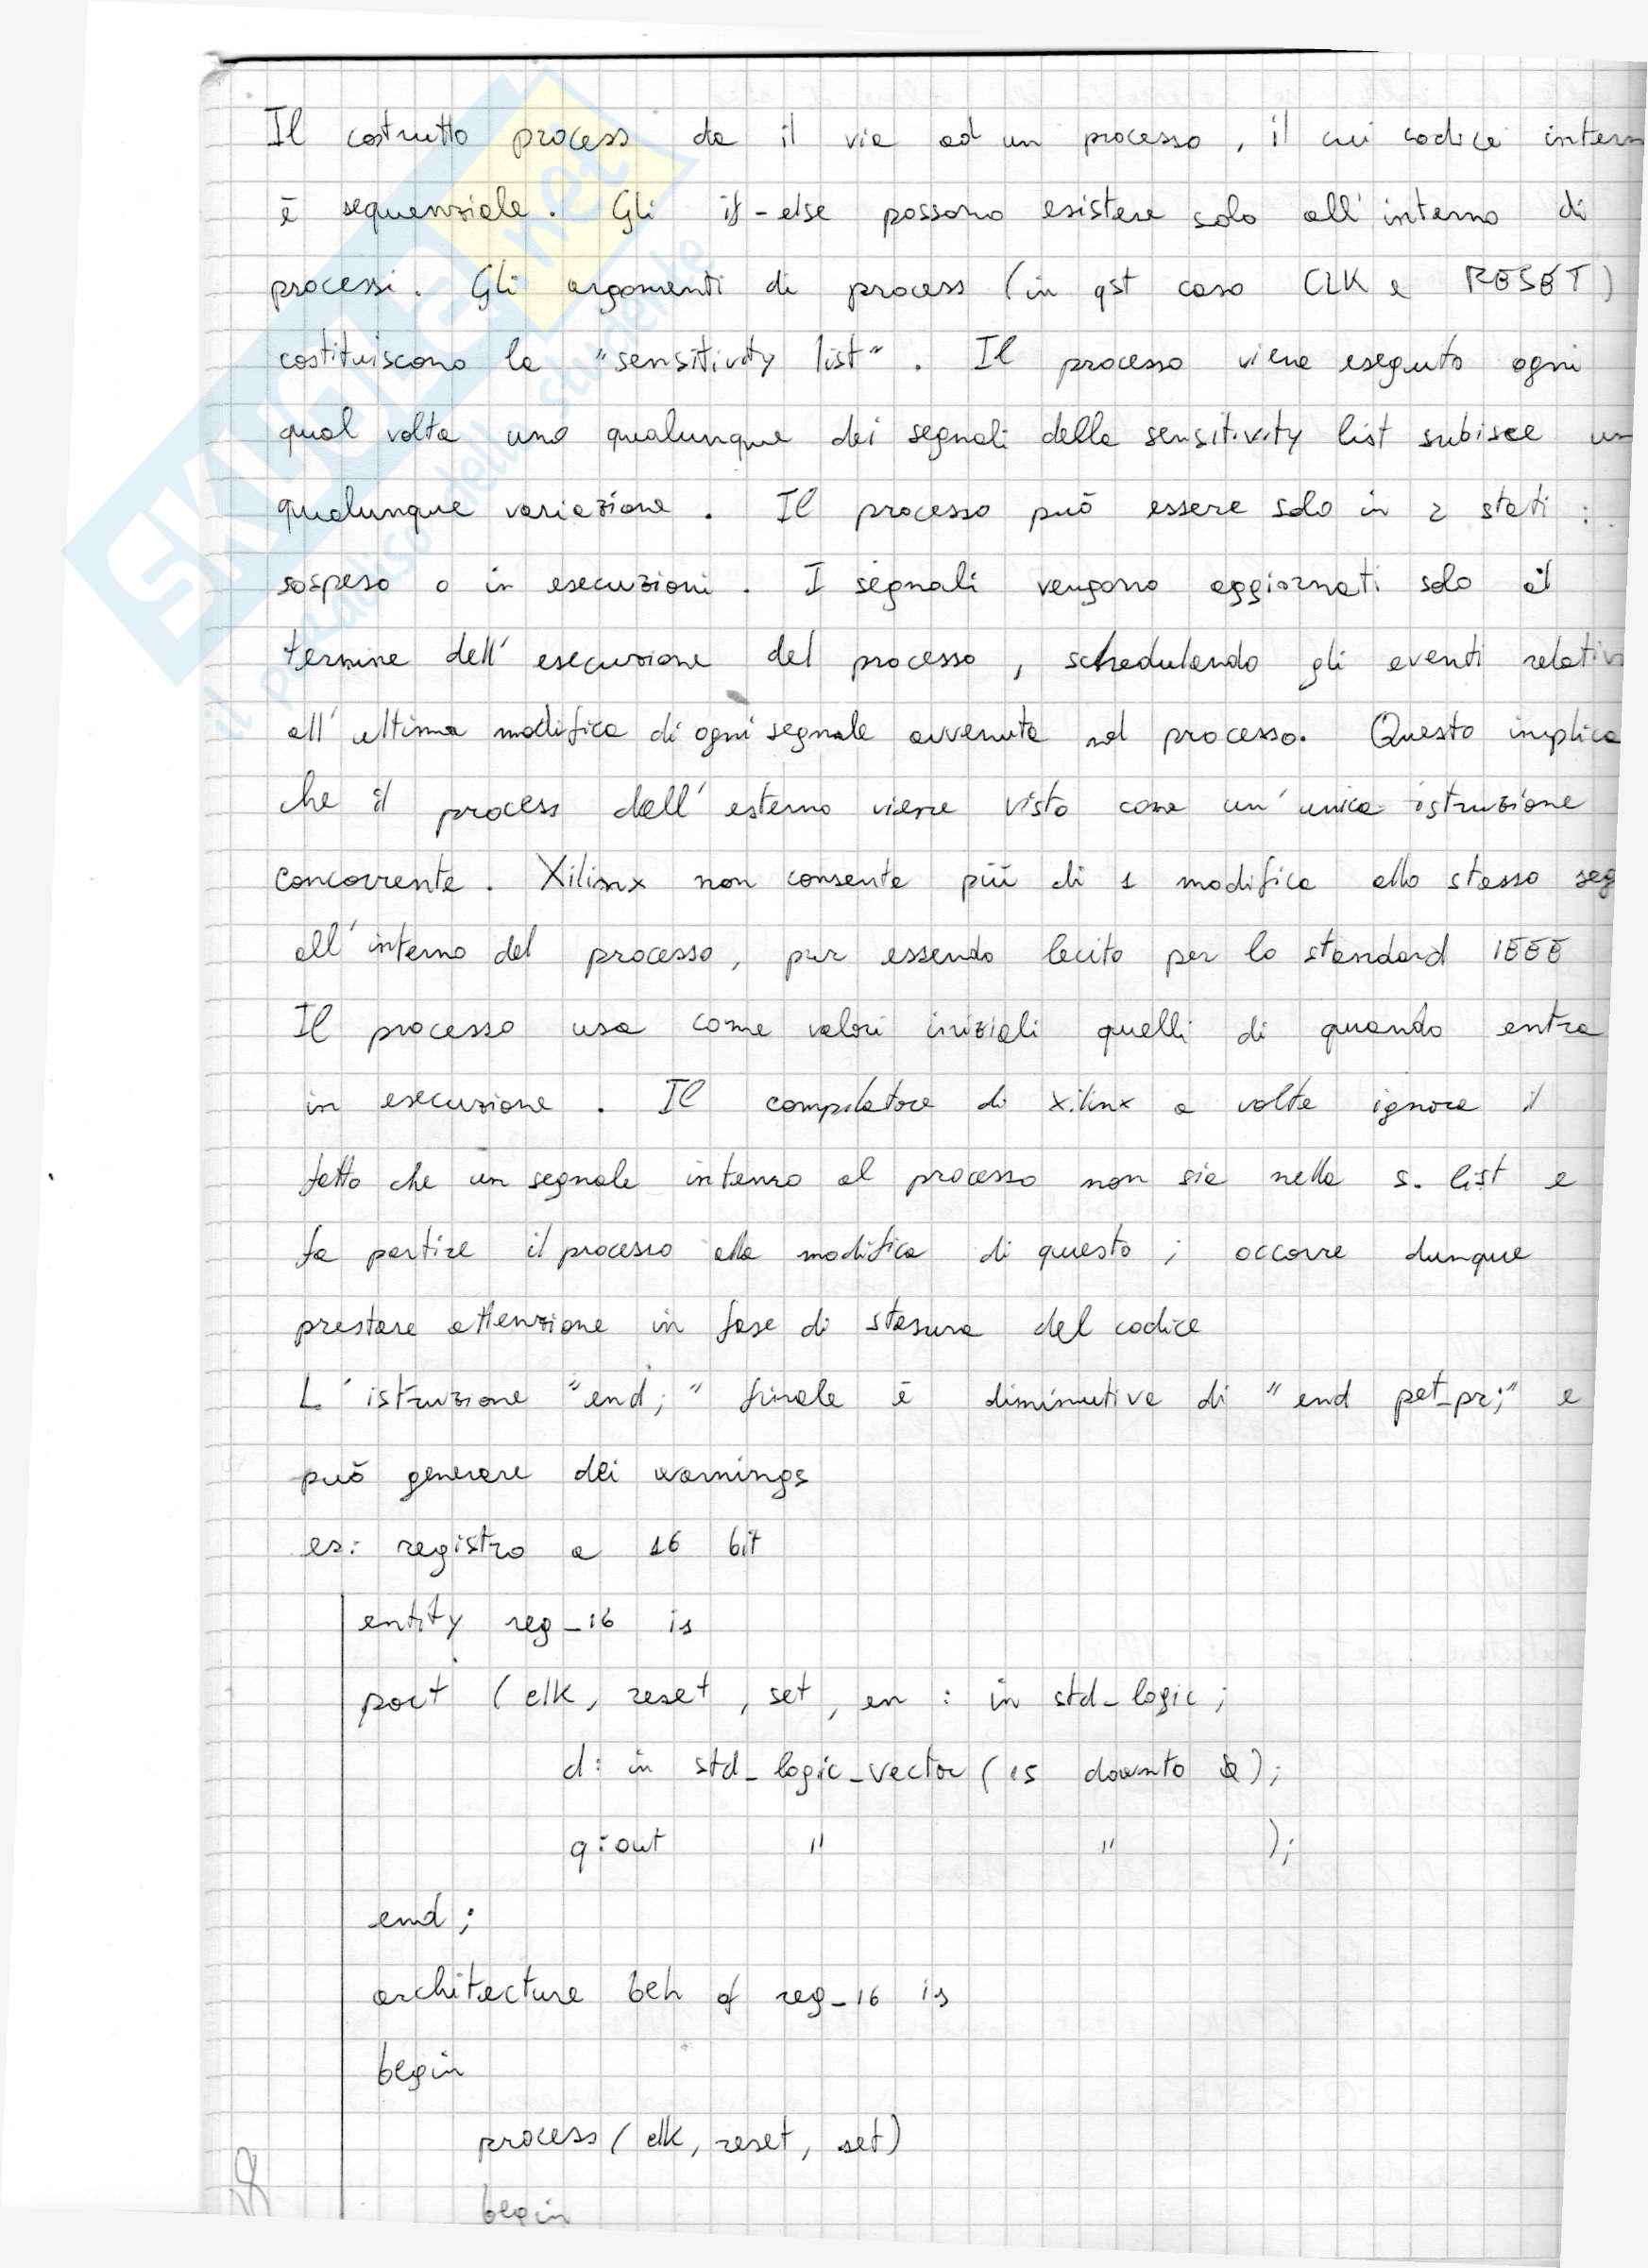 Il costrutto process da il via ad un processo, il cui codice intern
è sequenziale. Gli if-else possono esistere solo all'interno di
processi. Gli argomenti di process (in qst caso CLK e RESET)
costituiscono la "sensitivity list". Il processo viene eseguito ogni
qual volta uno qualunque dei segnali della sensitivity list subisce un
qualunque variazione. Il processo può essere solo in 2 stati:
sospeso o in esecuzioni. I segnali vengono aggiornati solo al
termine dell'esecuzione del processo, schedulando gli eventi relativ
all'ultima modifica di ogni segnale avvenuta nel processo. Questo implica
che il process dall'esterno viene visto come un'unica istruzione
concorrente. Xilinx non consente più di 1 modifica allo stesso seg
all'interno del processo, pur essendo lecito per lo standard IEEE
Il processo usa come valori iniziali quelli di quando entra
in esecuzione. Il compilatore di Xilinx a volte ignora il
fatto che un segnale interno al processo non sia nella s. list e
fa partire il processo alla modifica di questo; occorre dunque
prestare attenzione in fase di stesura del codice
L'istruzione "end;" finale è diminutiva di "end pet_pr;" e
può generare dei warnings
es: registro a 16 bit
entity reg_16 is
port (clk, reset, set, en : in std_logic;
d: in std_logic_vector (15 downto 0);
q: out " " );
end;
architecture beh of reg_16 is
begin
process (clk, reset, set)
begin
SKUOLA.net
il paradiso dello studente